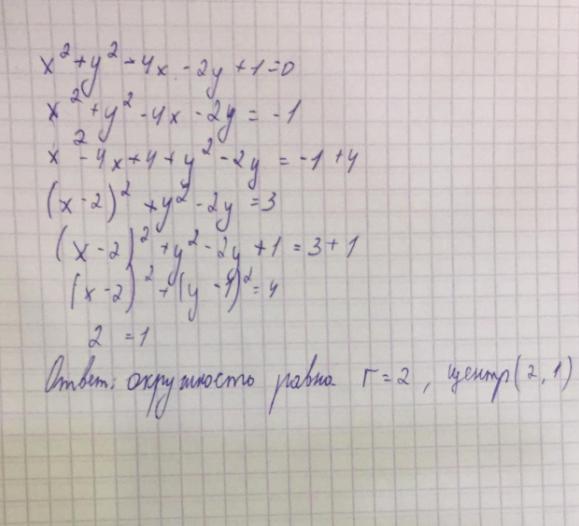 x² + y² - 4x - 2y + 1 = 0
x² + y² - 4x - 2y = -1
x² - 4x + 4 + y² - 2y = -1 + 4
(x - 2)² + y² - 2y = 3
(x - 2)² + y² - 2y + 1 = 3 + 1
(x - 2)² + (y - 1)² = 4
2 = 1
Ответ: окружность равна r = 2, центр (2, 1)